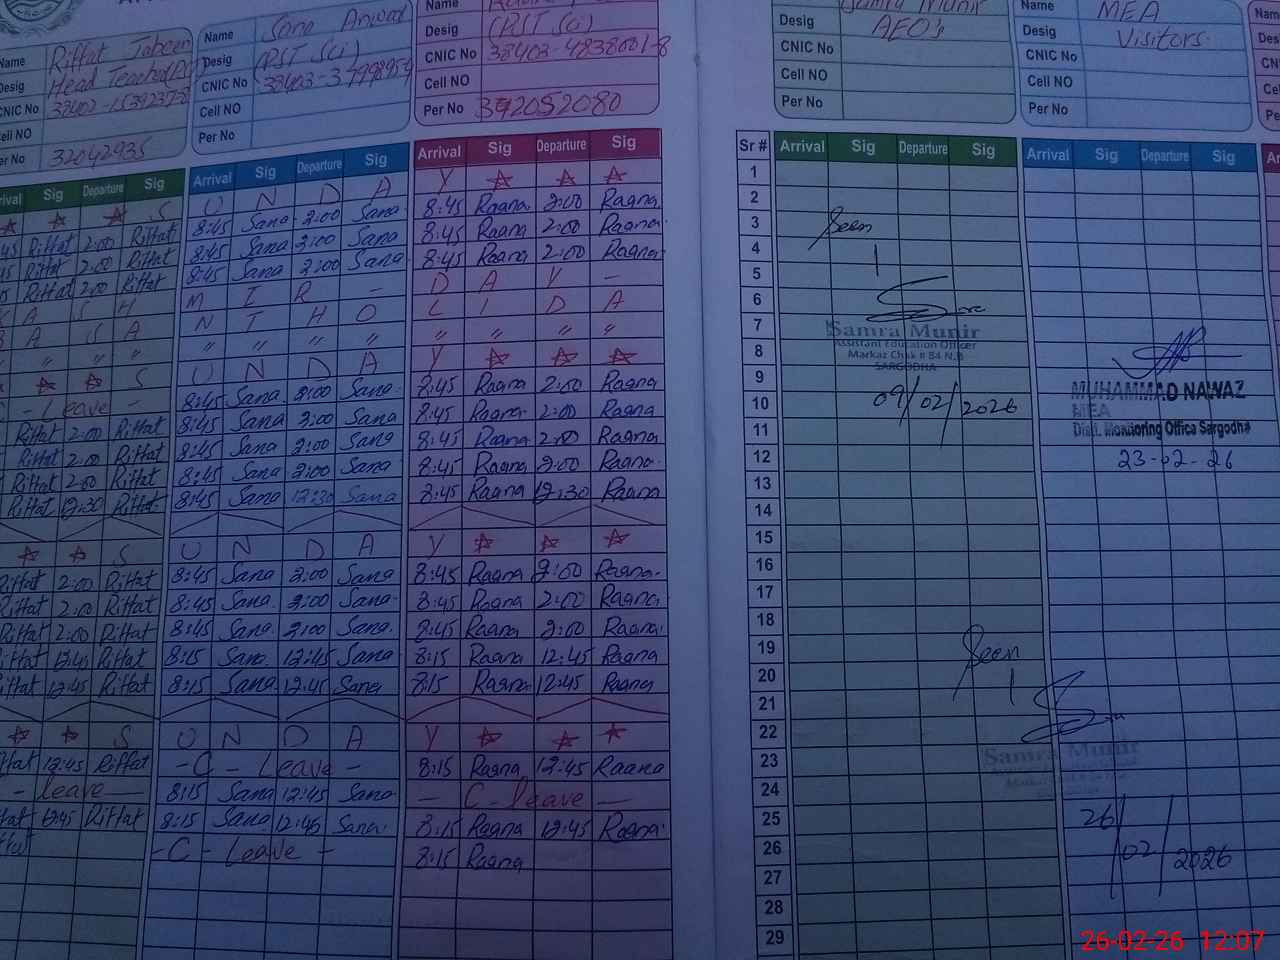 Name Riffat Tabeer
Desig Head Teacher
CNIC No
Cell NO
Per No 32042935
Name Sana
Desig (PST Sci)
CNIC No
Cell NO
Per No
Name
Desig (PST Sci)
CNIC No 38403-4838001-8
Cell NO
Per No
Samra Munir
Desig AEO's
CNIC No
Cell NO
Per No
Name MEA
Desig Visitors
CNIC No
Cell NO
Per No
Arrival Sig Departure Sig Arrival Sig Departure Sig Arrival Sig Departure Sig
S U N D A Y
Riffat 2:00 Riffat 8:45 Sana 2:00 Sana 8:45 Raana 2:00 Raana
Riffat 2:00 Riffat 8:45 Sana 2:00 Sana 8:45 Raana 2:00 Raana
Riffat 2:00 Riffat 8:45 Sana 2:00 Sana 8:45 Raana 2:00 Raana
A S H M I R - D A Y -
A S A N T H O L I D A
" " " " " " " " " " "
S U N D A Y
- Leave - 8:45 Sana 2:00 Sana 8:45 Raana 2:00 Raana
Riffat 2:00 Riffat 8:45 Sana 2:00 Sana 8:45 Raana 2:00 Raana
Riffat 2:00 Riffat 8:45 Sana 2:00 Sana 8:45 Raana 2:00 Raana
Riffat 2:00 Riffat 8:45 Sana 2:00 Sana 8:45 Raana 2:00 Raana
Riffat 12:30 Riffat 8:45 Sana 12:30 Sana 8:45 Raana 12:30 Raana
S U N D A Y
Riffat 2:00 Riffat 8:45 Sana 2:00 Sana 8:45 Raana 2:00 Raana
Riffat 2:00 Riffat 8:45 Sana 2:00 Sana 8:45 Raana 2:00 Raana
Riffat 2:00 Riffat 8:45 Sana 2:00 Sana 8:45 Raana 2:00 Raana
Riffat 12:45 Riffat 8:15 Sana 12:45 Sana 8:15 Raana 12:45 Raana
Riffat 12:45 Riffat 8:15 Sana 12:45 Sana 8:15 Raana 12:45 Raana
S U N D A Y
12:45 Riffat - C - Leave - 8:15 Raana 12:45 Raana
- leave - 8:15 Sana 12:45 Sana - C - leave -
12:45 Riffat 8:15 Sana 12:45 Sana 8:15 Raana 12:45 Raana
- C - Leave - 8:15 Raana
Sr # Arrival Sig Departure Sig Arrival Sig Departure Sig
1
2
3
4
5
6
7
8
9
10
11
12
13
14
15
16
17
18
19
20
21
22
23
24
25
26
27
28
29
Seen
Samra Munir
Assistant Education Officer
Markaz Chak # 84 N.B
SARGODHA
09/02/2026
MUHAMMAD NAWAZ
MEA
Distt. Monitoring Office Sargodha
23-02-26
Seen
Samra Munir
26/02/2026
26-02-26 12:07